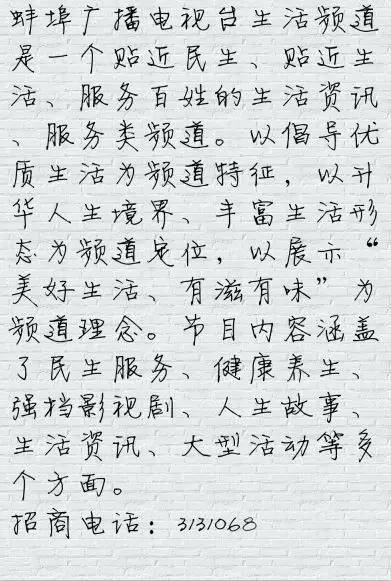 蚌埠广播电视台生活频道
是一个贴近民生、贴近生
活、服务百姓的生活资讯
、服务类频道。以倡导优
质生活为频道特征，以升
华人生境界、丰富生活形
态为频道定位，以展示“
美好生活、有滋有味”为
频道理念。节目内容涵盖
了民生服务、健康养生、
强档影视剧、人生故事、
生活资讯、大型活动等多
个方面。
招商电话：3131068